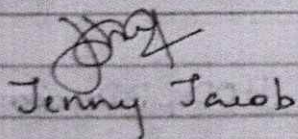 Jenny Jacob